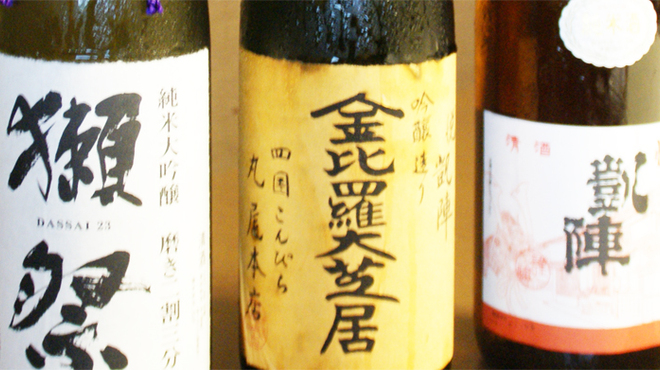 獺祭
DASSAI 23
純米大吟醸 磨き二割三分
吟醸造り
悦凱陣
金比羅大芝居
四国こんぴら
丸尾本店
清酒
凱陣